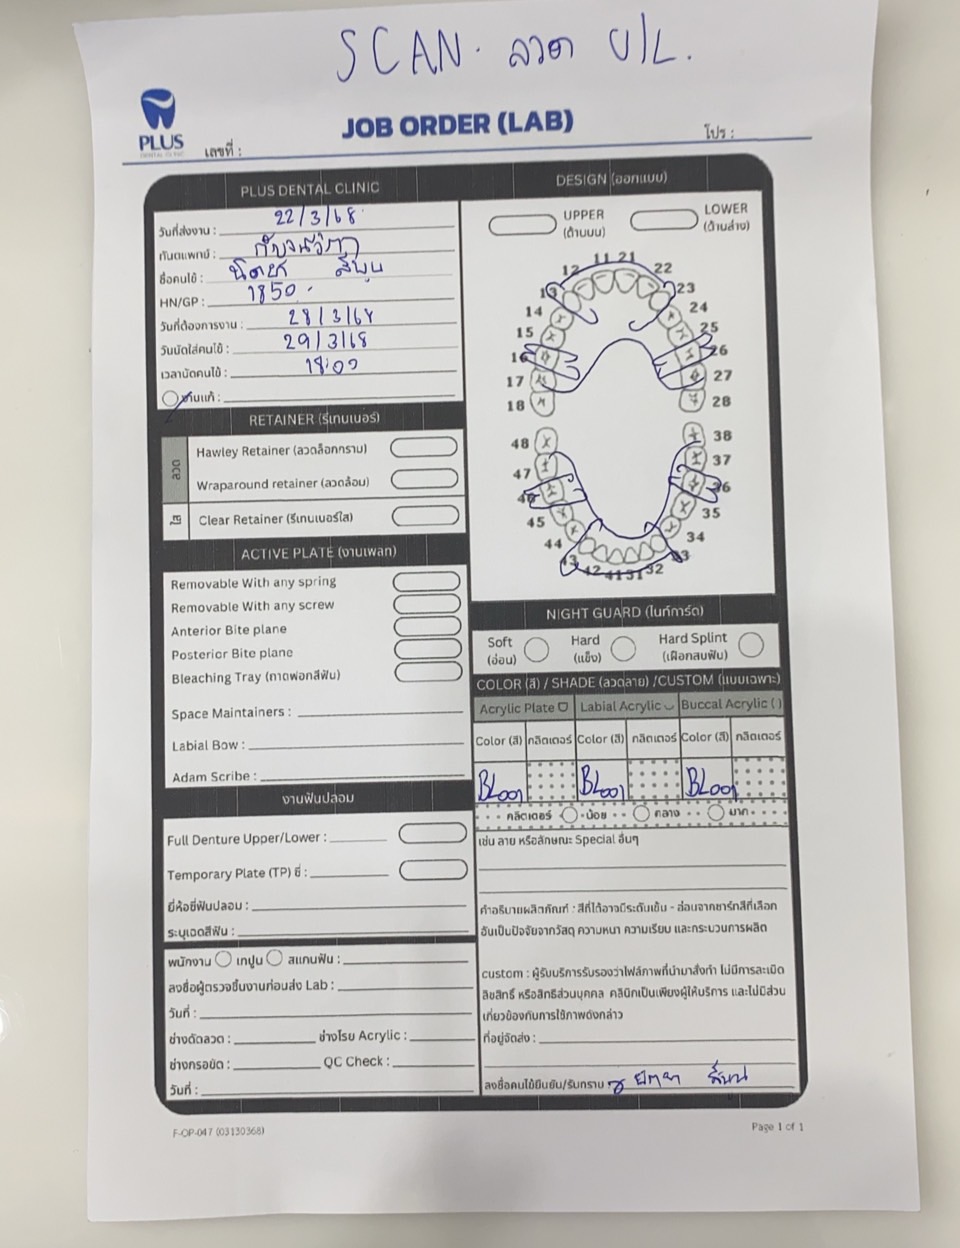 SCAN. ลวด U/L.
PLUS
DENTAL CLINIC
JOB ORDER (LAB)
เลขที่ :
โปร :
PLUS DENTAL CLINIC
วันที่ส่งงาน : 22/3/68
ทันตแพทย์ :
ชื่อคนไข้ :
HN/GP : 1850
วันที่ต้องการงาน : 28/3/68
วันนัดใส่คนไข้ : 29/3/68
เวลานัดคนไข้ : 18:00
งานแก้ :
RETAINER (รีเทนเนอร์)
ลวด
Hawley Retainer (ลวดล็อกกราม)
Wraparound retainer (ลวดล้อม)
ใส
Clear Retainer (รีเทนเนอร์ใส)
ACTIVE PLATE (งานเพลท)
Removable With any spring
Removable With any screw
Anterior Bite plane
Posterior Bite plane
Bleaching Tray (ถาดฟอกสีฟัน)
Space Maintainers :
Labial Bow :
Adam Scribe :
งานฟันปลอม
Full Denture Upper/Lower :
Temporary Plate (TP) ซี่ :
ยี่ห้อซี่ฟันปลอม :
ระบุเฉดสีฟัน :
พนักงาน เทปูน สแกนฟัน :
ลงชื่อผู้ตรวจชิ้นงานก่อนส่ง Lab :
วันที่ :
ช่างดัดลวด : ช่างโรย Acrylic :
ช่างกรอขัด : QC Check :
วันที่ :
DESIGN (ออกแบบ)
UPPER
(ด้านบน)
LOWER
(ด้านล่าง)
11 21
12 22
13 23
14 24
15 25
16 26
17 27
18 28
48 38
47 37
46 36
45 35
44 34
43 33
42 41 31 32
NIGHT GUARD (ไนท์การ์ด)
Soft
(อ่อน)
Hard
(แข็ง)
Hard Splint
(เฝือกสบฟัน)
COLOR (สี) / SHADE (ลวดลาย) /CUSTOM (แบบเฉพาะ)
Acrylic Plate Labial Acrylic Buccal Acrylic ( )
Color (สี) กลิตเตอร์ Color (สี) กลิตเตอร์ Color (สี) กลิตเตอร์
BL001 BL001 BL001
กลิตเตอร์ น้อย กลาง มาก
เช่น ลาย หรือลักษณะ Special อื่นๆ
คำอธิบายผลิตภัณฑ์ : สีที่ได้อาจมีระดับเข้ม - อ่อนจากชาร์ทสีที่เลือก
อันเป็นปัจจัยจากวัสดุ ความหนา ความเรียบ และกระบวนการผลิต
custom : ผู้รับบริการรับรองว่าไฟล์ภาพที่นำมาสั่งทำ ไม่มีการละเมิด
ลิขสิทธิ์ หรือสิทธิส่วนบุคคล คลินิกเป็นเพียงผู้ให้บริการ และไม่มีส่วน
เกี่ยวข้องกับการใช้ภาพดังกล่าว
ที่อยู่จัดส่ง :
ลงชื่อคนไข้ยืนยัน/รับทราบ
F-OP-047 (03130368)
Page 1 of 1